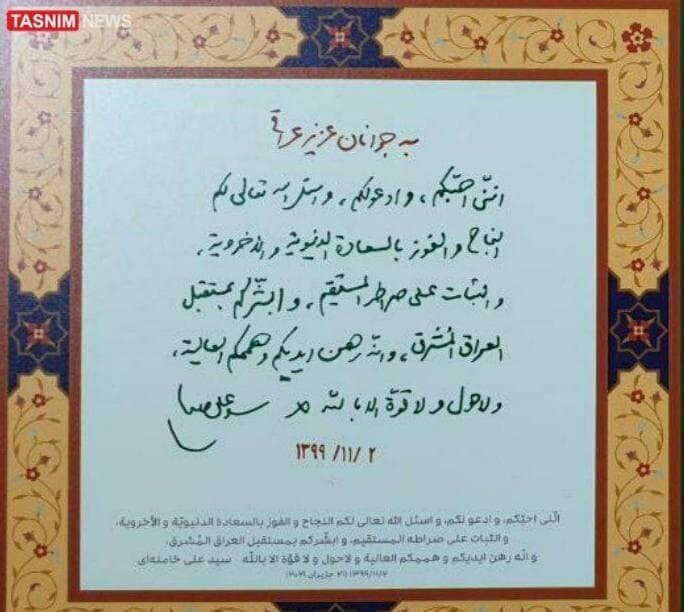 TASNIM NEWS
به جوانان عزیز عراقی
انني احبّكم، و ادعولكم، و اسئل الله تعالی لکم
النجاح و الفوز بالسعادة الدنیویة و الأخرویة،
و الثبات علی صراطه المستقیم، و ابشّرکم بمستقبل
العراق المُشرق، و انّه رهن ایدیکم و هممکم العالیة،
ولاحول ولا قوّة الا بالله سید علی خامنه‌ای
۱۳۹۹/۱۱/۲
انّنی احبّکم، و ادعو لکم، و اسئل الله تعالی لکم النجاح و الفوز بالسعادة الدنیویّة و الأخرویة،
و الثبات علی صراطه المستقیم، و ابشّرکم بمستقبل العراق المُشرق،
و انّه رهن ایدیکم و هممکم العالیة و لاحول و لا قوّة الا بالله سید علی خامنه‌ای
۱۳۹۹/۱۱/۲ (۲۱ حزیران ۲۰۲۱)